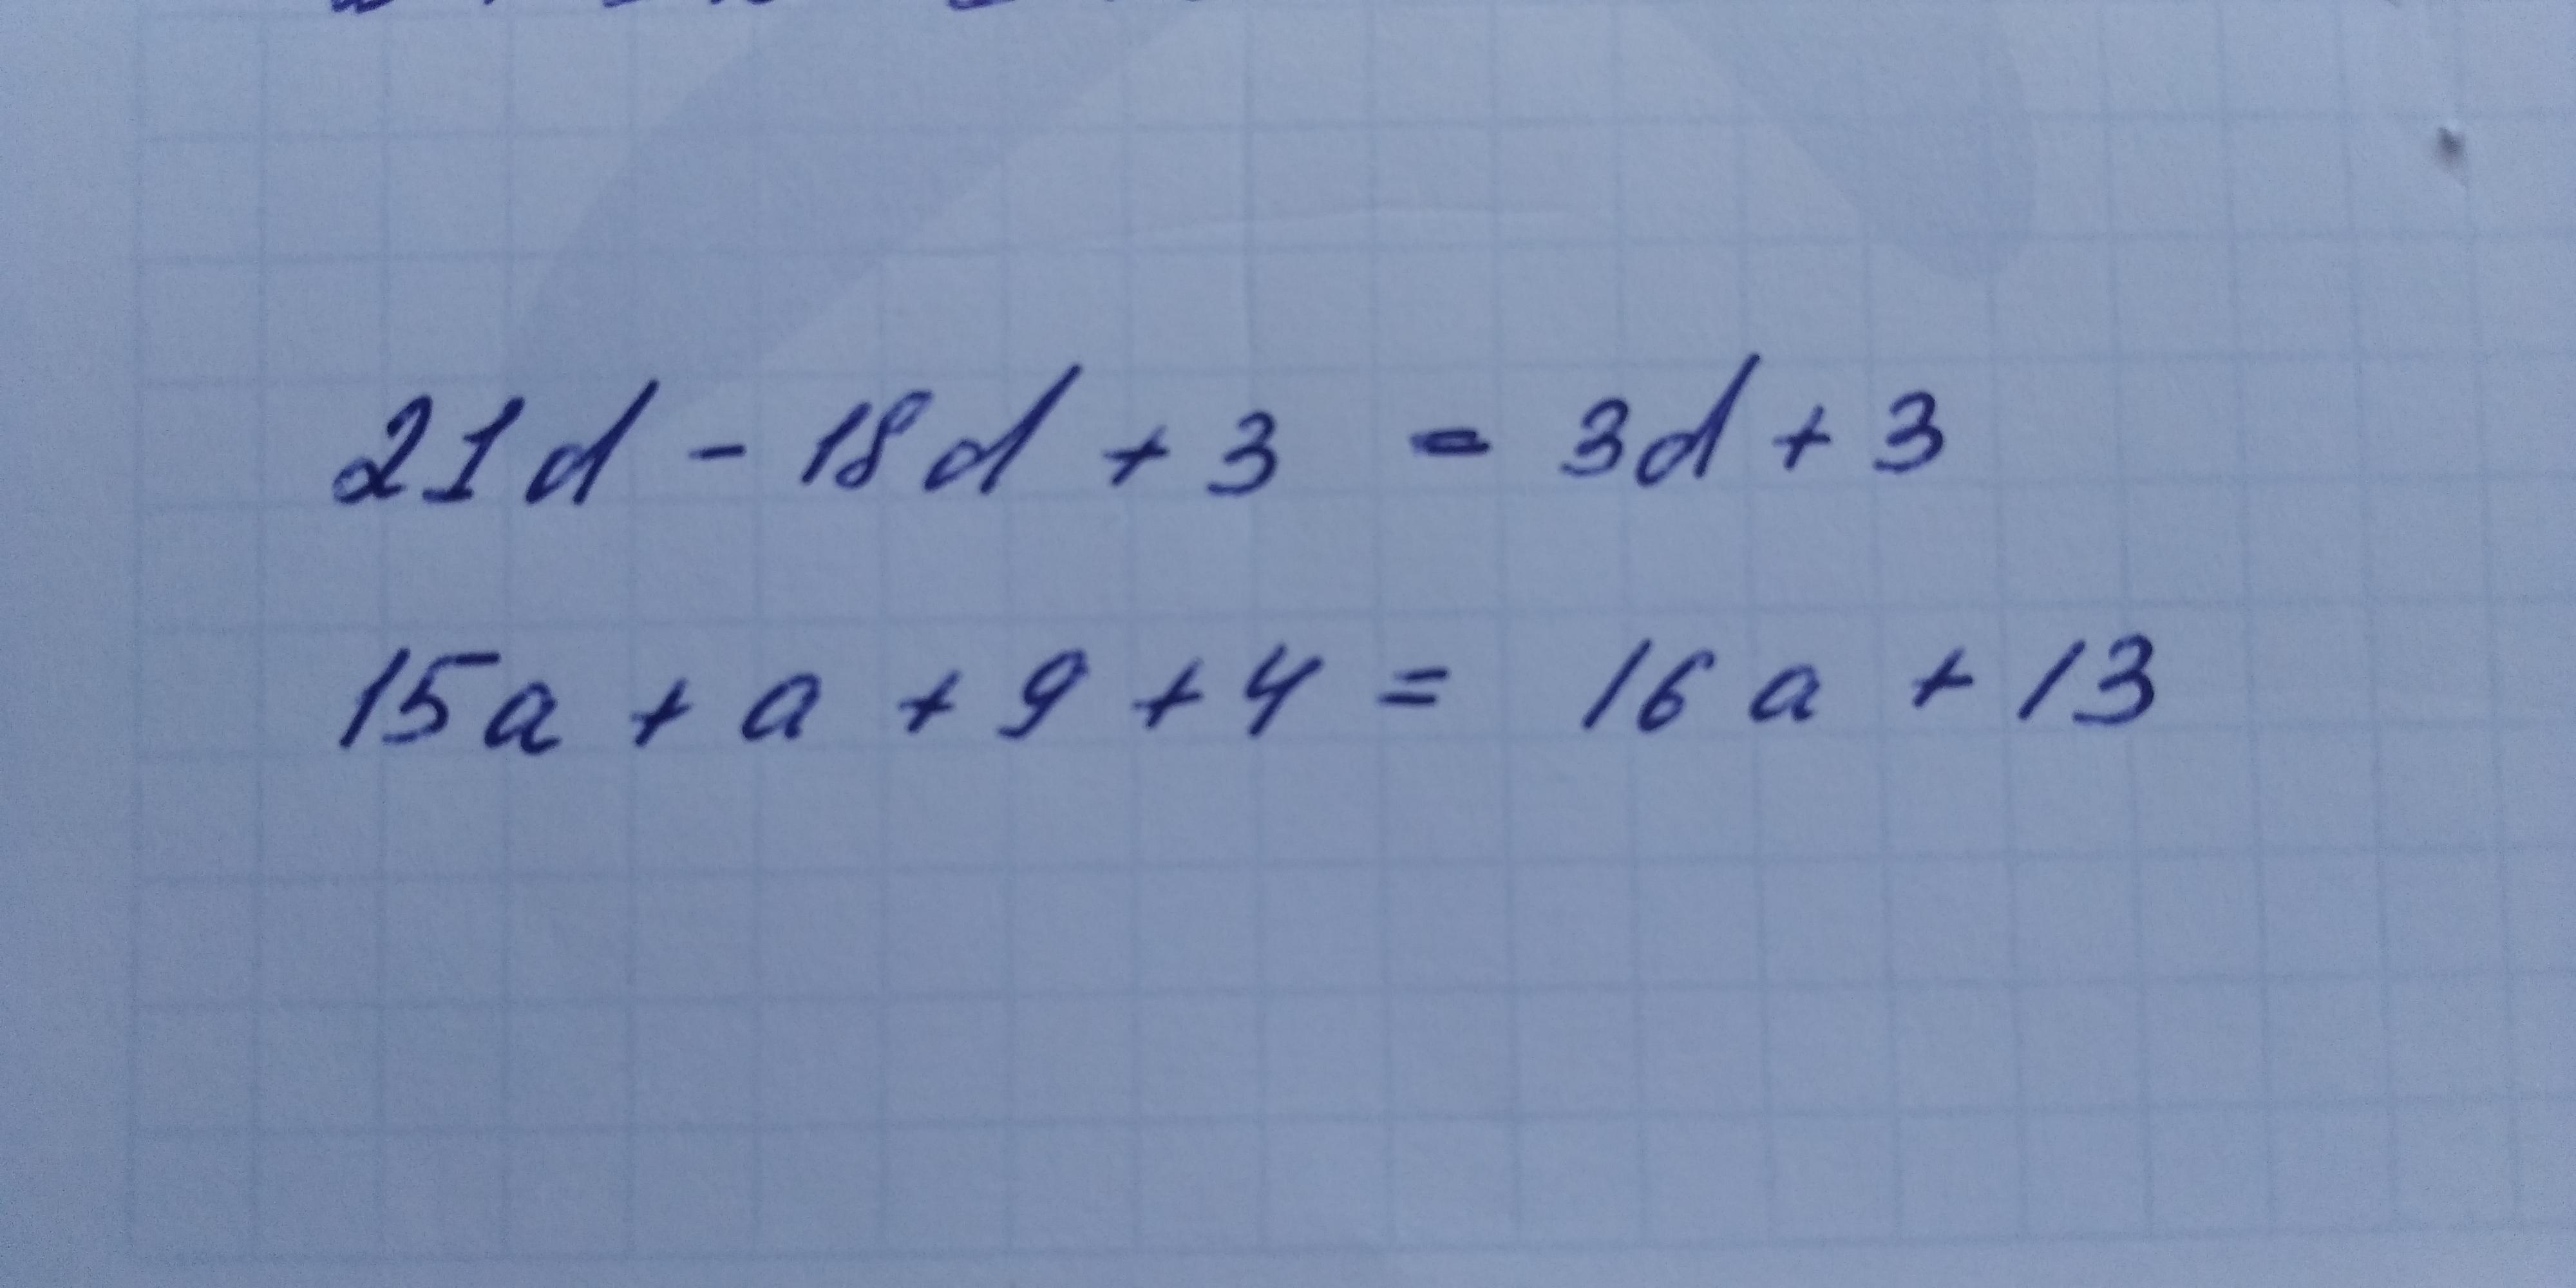 21d - 18d + 3 = 3d + 3
15a + a + 9 + 4 = 16a + 13